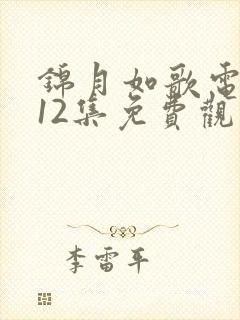 錦月如歌電
12集免費觀
李雷平